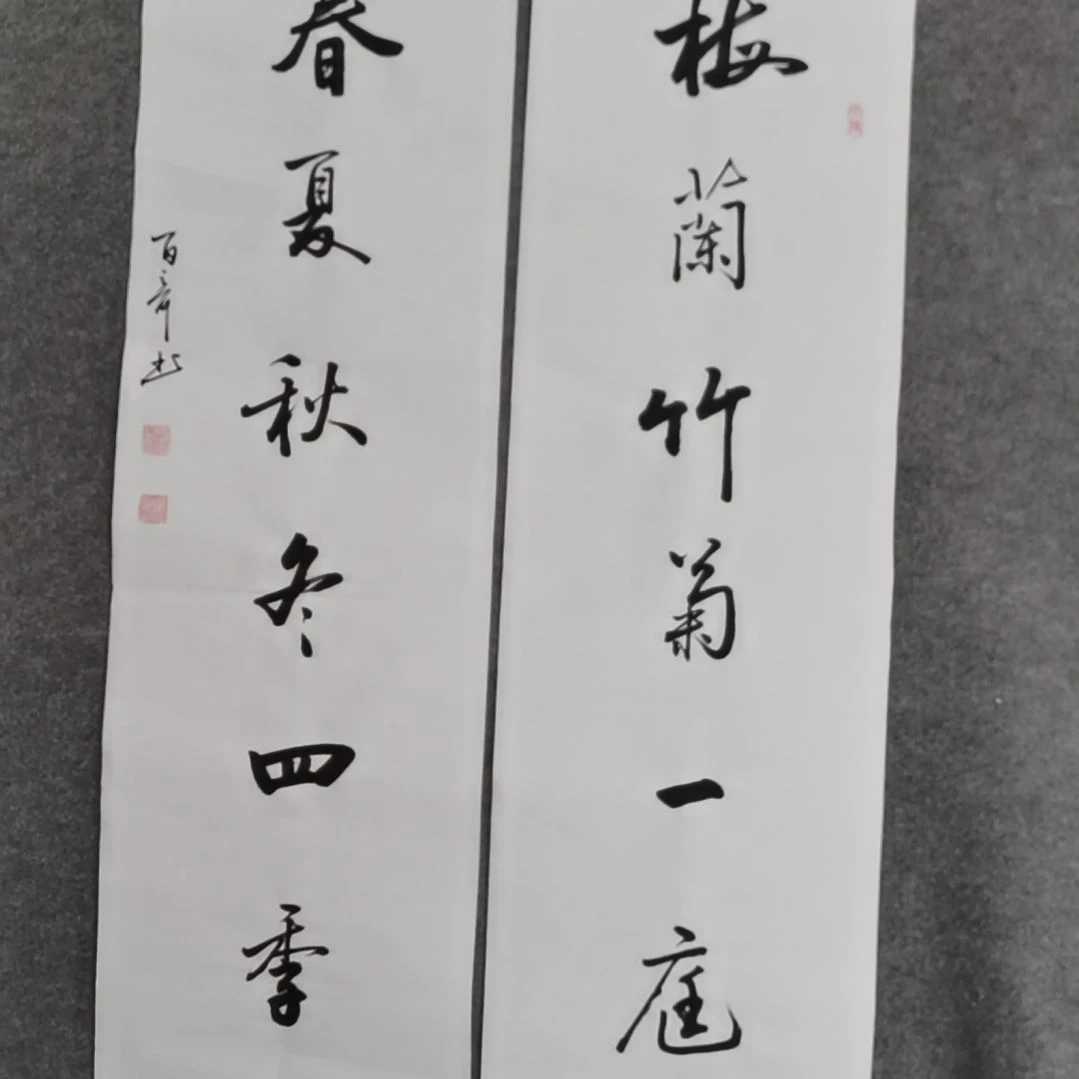 梅蘭竹菊一庭
春夏秋冬四季
百舜书